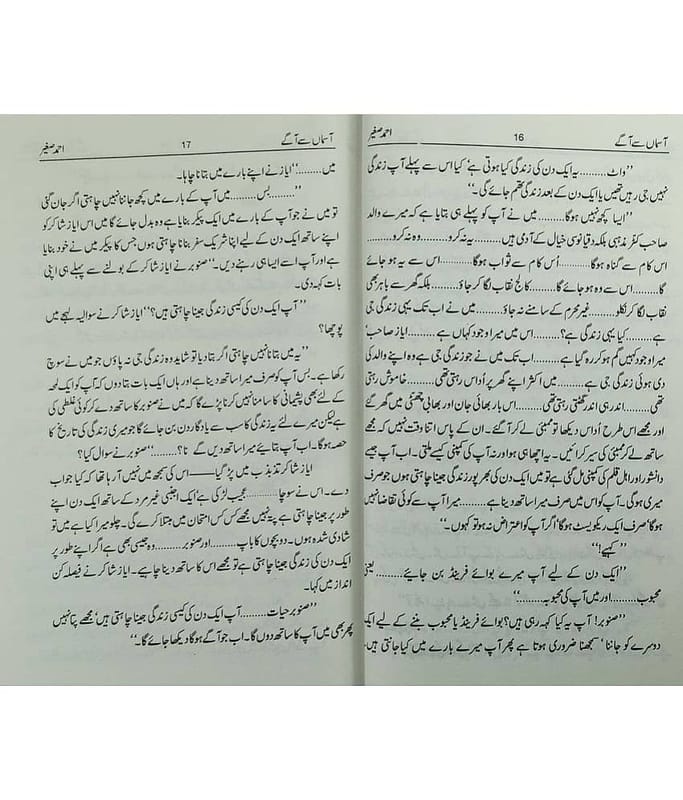 آسماں سے آگے 16 احمد صغیر
’’واٹ.........یہ ایک دن کی زندگی کیا ہوتی ہے‘ کیا اس سے پہلے آپ زندگی
نہیں جی رہیں تھیں یا ایک دن کے بعد زندگی ختم ہو جائے گی۔‘‘
’’ایسا کچھ نہیں ہوگا.........میں نے آپ کو پہلے ہی بتایا ہے کہ میرے والد
صاحب کٹر مذہبی بلکہ دقیانوسی خیال کے آدمی ہیں.........یہ نہ کرو.........وہ نہ کرو.........
اس کام سے گناہ ہوگا.........اُس کام سے ثواب ہوگا.........اس سے یہ ہو جائے
گا.........اس سے وہ ہو جائے گا.........کالج نقاب لگا کر جاؤ.........بلکہ گھر سے باہر بھی
نقاب لگا کر نکلو.........غیر محرم کے سامنے نہ جاؤ.........میں نے اب تک یہی زندگی جی
ہے.........کیا یہی زندگی ہے؟.........اس میں میرا وجود کہاں ہے.........ایاز صاحب‘
میرا وجود کہیں گم ہو کر رہ گیا ہے.........اب تک میں نے جو زندگی جی ہے وہ اپنے والد کی
دی ہوئی زندگی جی ہے.........میں اکثر اپنے گھر پر اُداس رہتی تھی.........خاموش رہتی
تھی.........اندر ہی اندر گھٹتی رہتی تھی.........اس بار بھائی جان اور بھابی چھٹی میں گھر گئے
اور مجھے اس طرح اُداس دیکھا تو ممبئی لے کر آ گئے۔ ان کے پاس اتنا وقت نہیں کہ مجھے
ساتھ لے کر ممبئی کی سیر کرائیں۔ یہ اچھا ہی ہوا ورنہ آپ کی کمپنی کیسے ملتی۔ اب آپ جیسے
دانشور اور اہل قلم کی کمپنی مل گئی ہے تو میں ایک دن کی بھرپور زندگی جینا چاہتی ہوں جو صرف
میری ہوگی۔ آپ کو اس میں صرف میرا ساتھ دینا ہے.........میرا آپ سے کوئی تقاضا نہیں
ہوگا‘ صرف ایک ریکویسٹ ہوگا‘ اگر آپ کو اعتراض نہ ہو تو کہوں۔‘‘
’’کہیے!‘‘
’’ایک دن کے لیے آپ میرے بوائے فرینڈ بن جائیے.........یعنی
محبوب.........اور میں آپ کی محبوبہ.........‘‘
’’صنوبر! آپ یہ کیا کہہ رہی ہیں؟ بوائے فرینڈ یا محبوب بننے کے لیے ایک
دوسرے کو جاننا‘ سمجھنا ضروری ہوتا ہے پھر آپ میرے بارے میں کیا جانتی ہیں
آسماں سے آگے 17 احمد صغیر
میں.........‘‘ ایاز نے اپنے بارے میں بتانا چاہا۔
’’.........بس.........میں آپ کے بارے میں کچھ جاننا نہیں چاہتی اگر جان گئی
تو میں نے جو آپ کے بارے میں ایک پیکر بنایا ہے وہ بدل جائے گا میں اس ایاز شاکر کو
اپنے ساتھ ایک دن کے لیے اپنا شریک سفر بنانا چاہتی ہوں جس کا پیکر میں نے خود بنایا
ہے اور آپ اسے ایسا ہی رہنے دیں۔‘‘ صنوبر نے ایاز شاکر کے بولنے سے پہلے ہی اپنی
بات کہہ دی۔
’’آپ ایک دن کی کیسی زندگی جینا چاہتی ہیں؟‘‘ ایاز شاکر نے سوالیہ لہجے میں
پوچھا؟
’’یہ میں بتانا نہیں چاہتی اگر بتا دیا تو شاید وہ زندگی جی نہ پاؤں جو میں نے سوچ
رکھا ہے۔ بس آپ کو صرف میرا ساتھ دینا ہے اور ہاں ایک بات بتا دوں کہ آپ کو ایک لمحہ
کے لئے بھی پشیمانی کا سامنا نہیں کرنا پڑے گا کہ میں نے صنوبر کا ساتھ دے کر کوئی غلطی کی
لیکن میرے لئے یہ زندگی کا سب سے یادگار دن بن جائے گا جو میری زندگی کی تاریخ کا
حصہ ہوگا۔ اب آپ بتائیے میرا ساتھ دیں گے نا؟.........صنوبر نے سوال کیا؟
ایاز شاکر تذبذب میں پڑ گیا——اس کی سمجھ میں نہیں آ رہا تھا کہ کیا جواب
دے۔ اس نے سوچا.........عجیب لڑکی ہے‘ ایک اجنبی غیر مرد کے ساتھ ایک دن اپنے
طور پر جینا چاہتی ہے پتہ نہیں مجھے کس کس امتحان میں مبتلا کرے گی۔ چلو میرا کیا ہے میں تو
شادی شدہ ہوں۔ دو بچوں کا باپ.........اور صنوبر.........وہ جیسی بھی ہے اگر اپنے طور پر
ایک دن کی زندگی جینا چاہتی ہے تو مجھے اس کا ساتھ دینا چاہیے۔ ایاز شاکر نے فیصلہ کن
انداز میں کہا۔
’’صنوبر حیات.........آپ ایک دن کی کیسی زندگی جینا چاہتی ہیں‘ مجھے پتا نہیں
پھر بھی میں آپ کا ساتھ دوں گا۔ اب جو آگے ہوگا دیکھا جائے گا۔‘‘